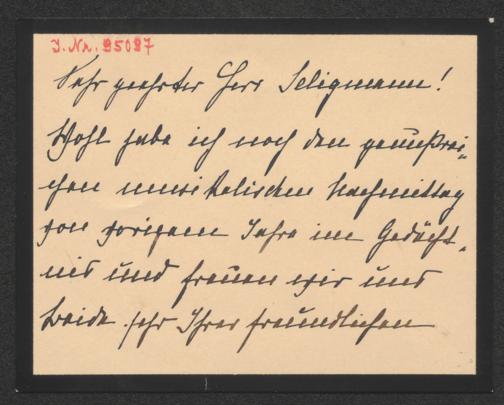 I. Nr. 95087
Sehr geehrter Herr Seligmann!
Wohl habe ich noch den genußrei-
chen musikalischen Nachmittag
von vorigem Jahre im Gedächt-
nis und freuen wir uns
beide sehr Ihrer freundlichen